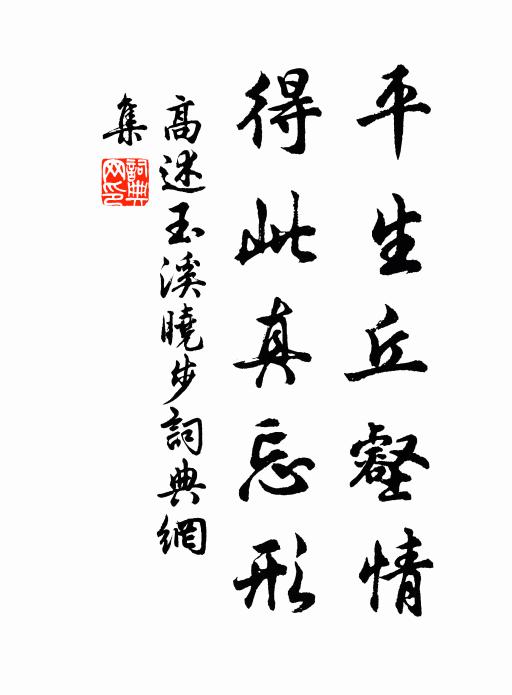 平生丘壑情
得此真忘形
高述玉溪曉步詞典網
集
詞典網印